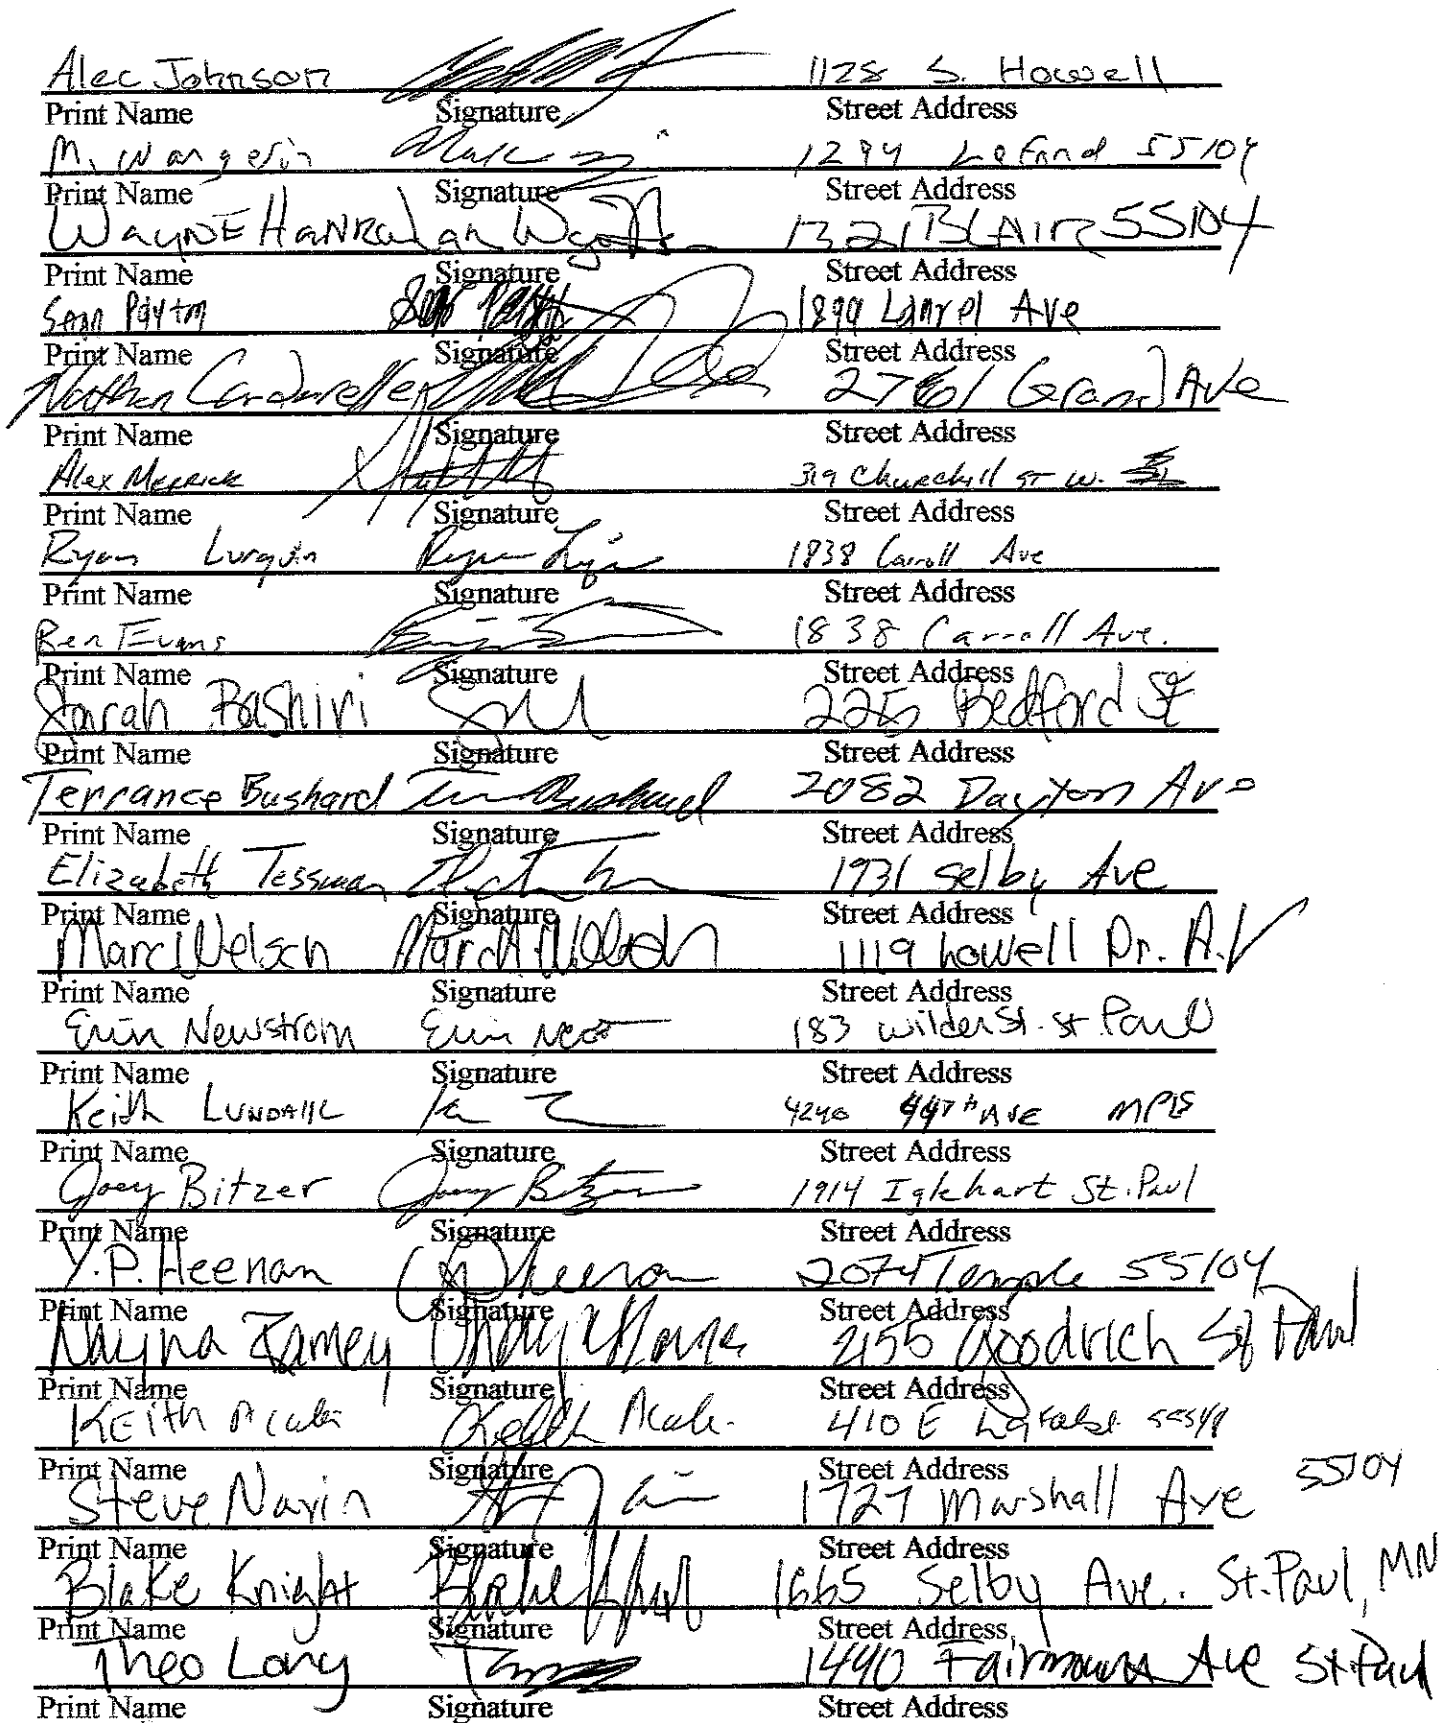 Alec Johnson 1128 S. Howell
Print Name Signature Street Address
M. Wangerin 1294 55104
Print Name Signature Street Address
WaynE HaNRahan 1321 BLAIR 55104
Print Name Signature Street Address
Sean Payton 1899 Laurel Ave
Print Name Signature Street Address
Nathan Grand Ave
Print Name Signature Street Address
Alex Merrick 319 Churchill ST W.
Print Name Signature Street Address
Ryan Lurquin Ryan 1838 Carroll Ave
Print Name Signature Street Address
Ben Evans 1838 Carroll Ave.
Print Name Signature Street Address
Sarah Bashiri 225 Bedford St
Print Name Signature Street Address
Terrance Bushard Bushard 2082 Dayton Ave
Print Name Signature Street Address
Elizabeth Tessman 1931 Selby Ave
Print Name Signature Street Address
Marci Nelson Marci A. Nelson 1119 Lowell Dr. A.V
Print Name Signature Street Address
Erin Newstrom Erin 183 Wilder St. St Paul
Print Name Signature Street Address
Keith 4240 44TH AVE MPLS
Print Name Signature Street Address
Joey Bitzer Joey Bitzer 1914 Iglehart St. Paul
Print Name Signature Street Address
Y.P. Heenan YP Heenan 2074 Temple 55104
Print Name Signature Street Address
Nayna Ramey 2155 Goodrich St Paul
Print Name Signature Street Address
KEith Keith 410 E
Print Name Signature Street Address
Steve Navin 1727 Marshall Ave 55104
Print Name Signature Street Address
Blake Knight Blake Knight 1665 Selby Ave. St. Paul, MN
Print Name Signature Street Address
Theo Long 1440 Fairmount Ave St Paul
Print Name Signature Street Address